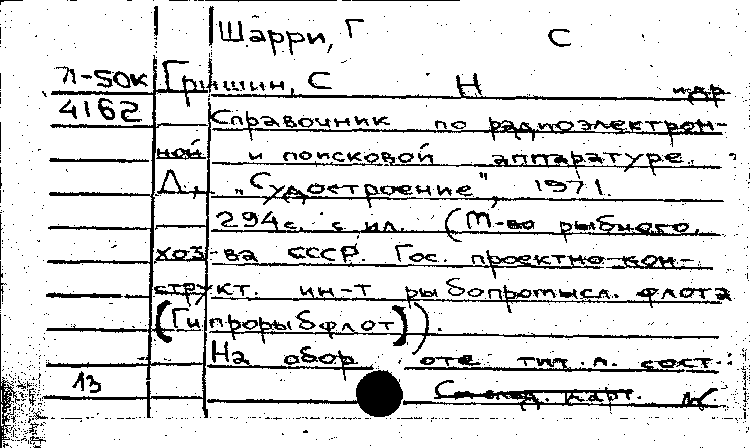 Шарри, Г С
Л-50к Гришин, С Н и др
4162
Справочник по радиоэлектрон-
ной и поисковой аппаратуре.
Л., „Судостроение", 1971.
294с. с ил. (М-во рыбного
хоз-ва СССР. Гос. проектно-кон-
структ. ин-т рыбопромысл. флота
(Гипрорыбфлот)).
На обор. тит. л. сост.:
13 См. след. карт.